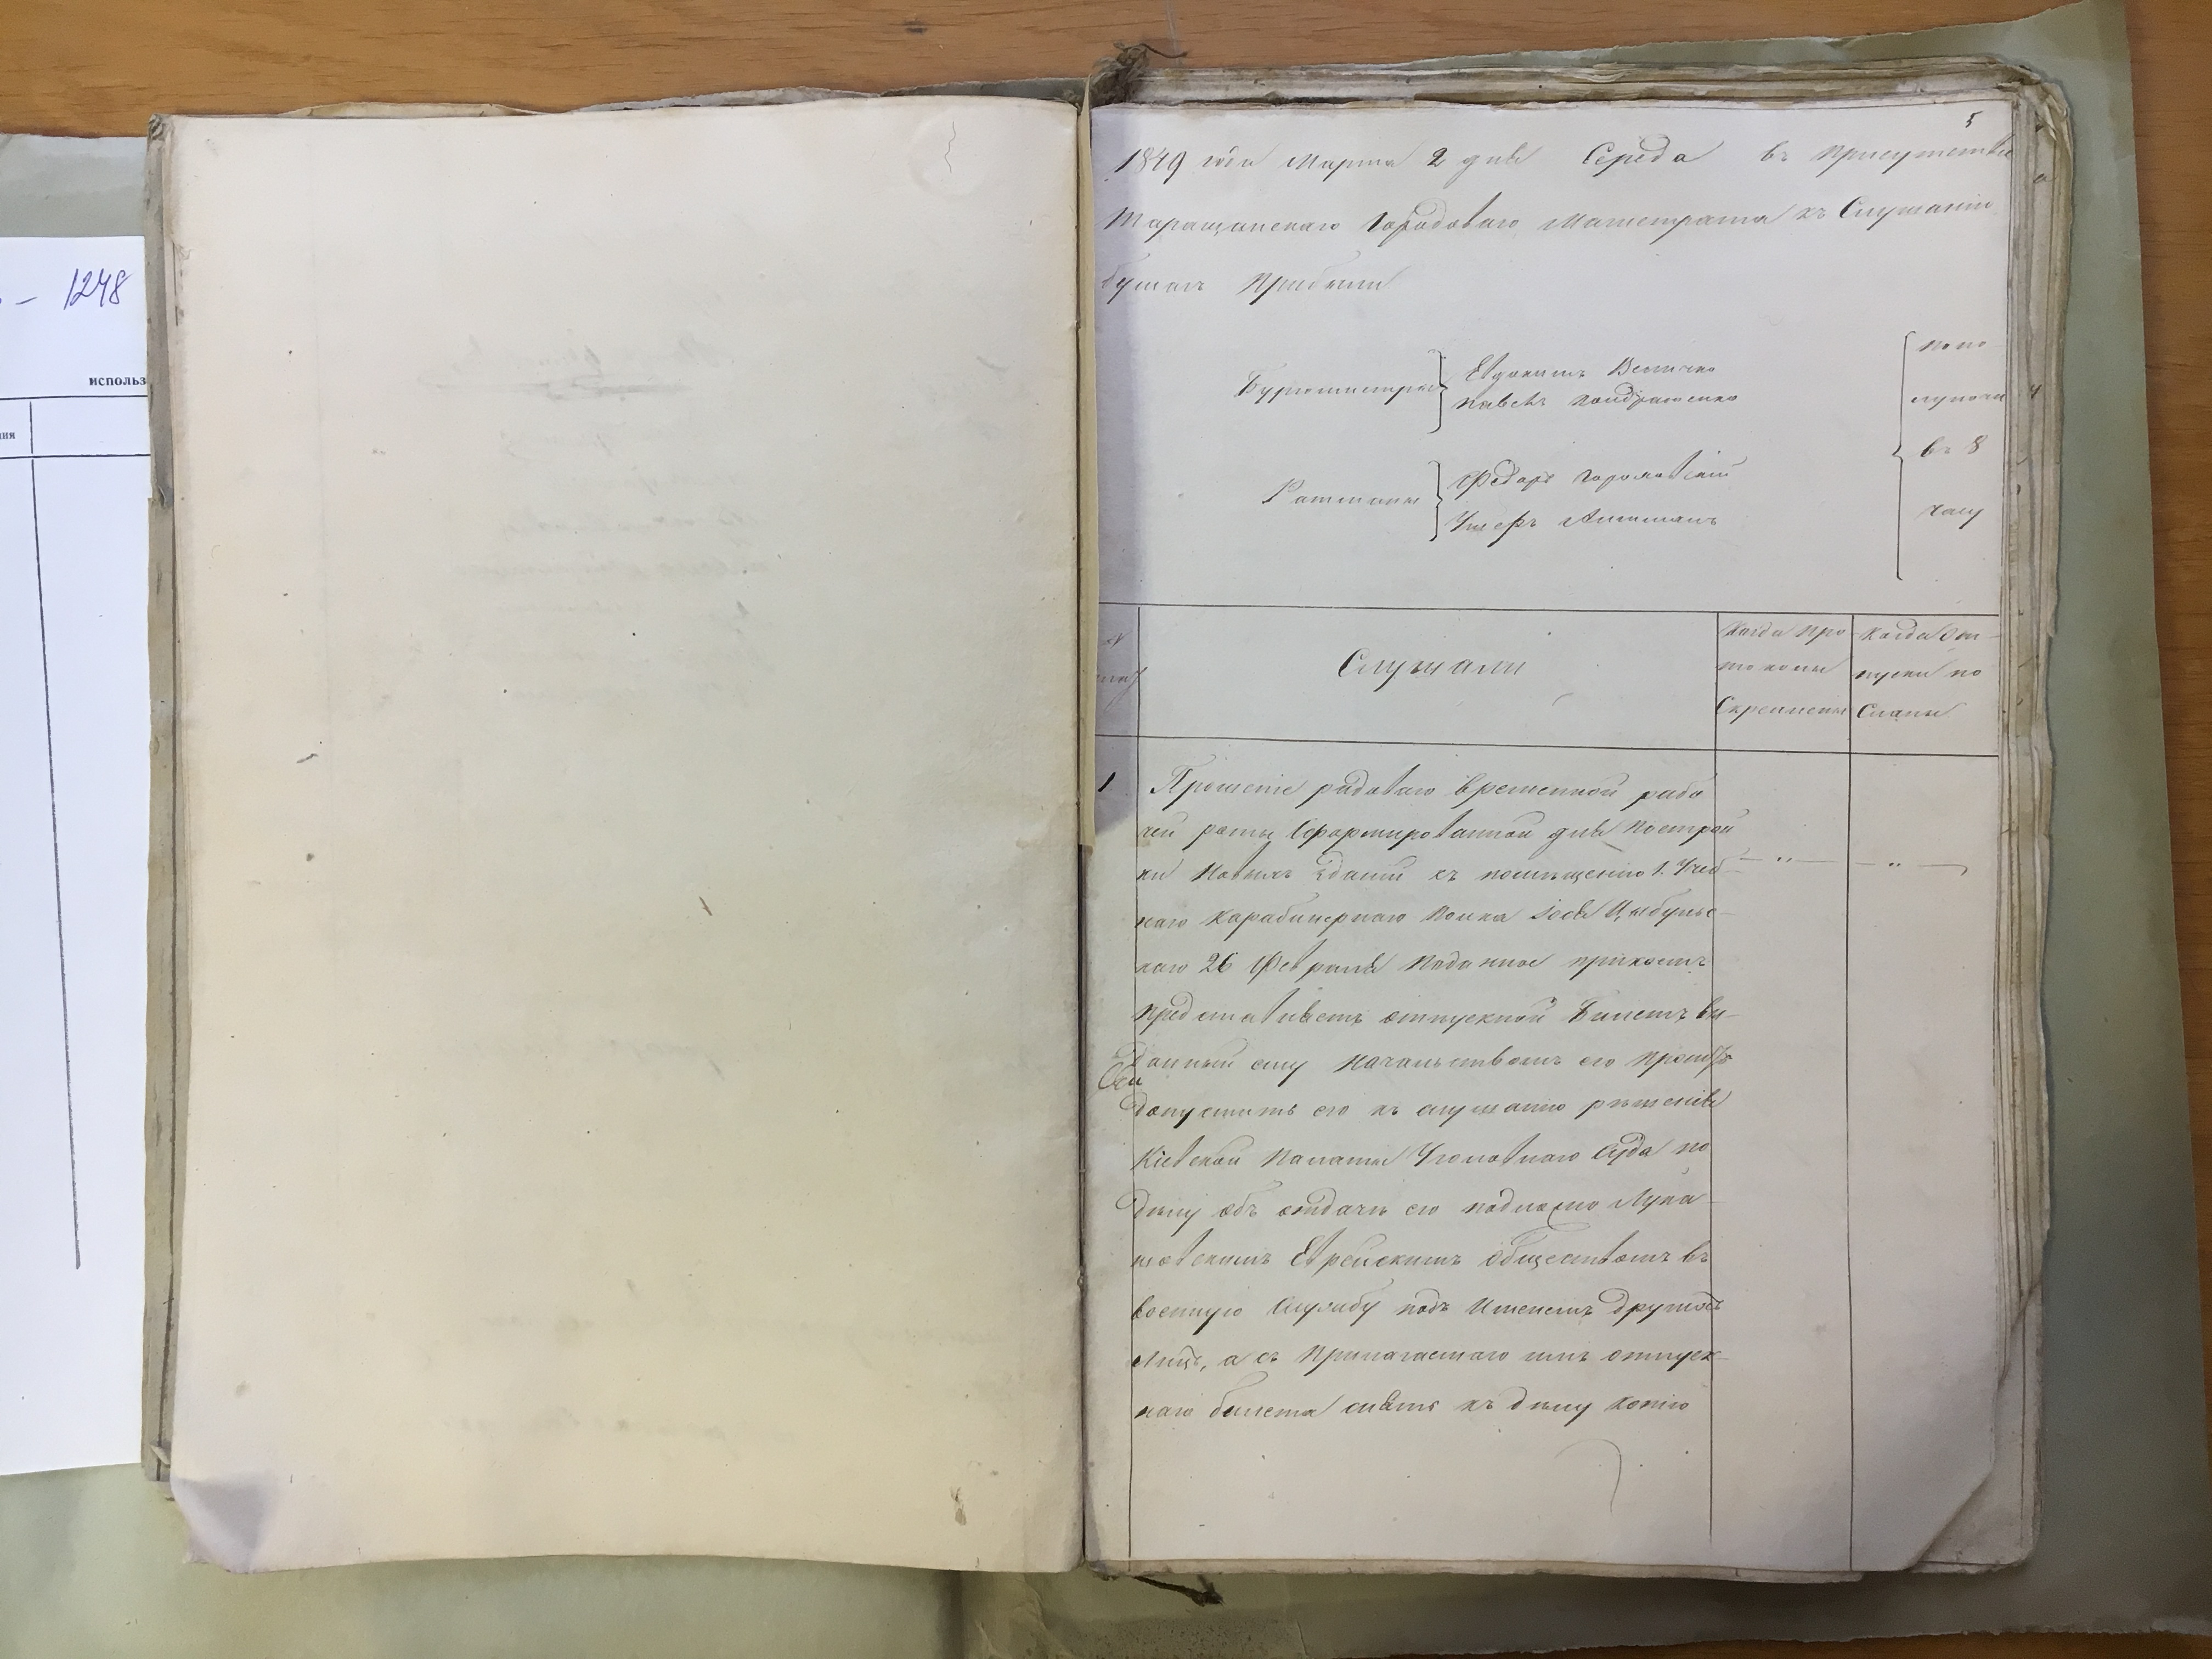 1248
исполь
ния
5
1849 года Марта 2 дня Середа въ присутствіе
Таращанскаго Городоваго Магистрата къ Слушанію
бумагъ Прибыли
Бургомистры
Евдокимъ Величко
Павелъ Кондратенко
Ратманы
Федоръ
попо
луночи
въ 8
часу
№
Слушали
Когда про
токолы
Скреплены
Когда От-
пуски по
Сланы
1
Прошеніе рядоваго временной рабо
чей роты Сформированной для Построй
ки Новыхъ зданій къ помѣщенію 1. Учеб
наго Карабинернаго Полка Іося Цыбульс-
каго 26 Февраля Поданное при коемъ
Представляетъ отпускной Билетъ вы-
данный ему Начальствомъ его Проситъ
допустить его къ слушанію рѣшенія
Кіевской Палаты Уголовнаго Суда по
дѣлу объ отдачѣ его подложно Лука-
шовскимъ Еврейскимъ Обществомъ въ
военную Службу подъ Именемъ другихъ
Лицъ, а съ Прилагаемаго имъ отпуск-
наго билета снять къ дѣлу копію